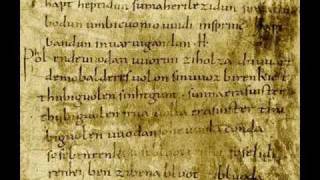 hapt heptidun sumaherilezidun suma
bodun umbicuonio uuidi insprinc
bandun inuar uigandun. H.
Phol endeuuodan uuorun ziholza du uuart
demobalderes uolon sinuuoz birenkict
thubiguolen sinhtgunt. sunnaerasuister
thubiguolen friia uolla erasuister thu
biguolen uuodan uuola conda
sosebenrenki soselidi
renki ben zibena bluot zibluoda